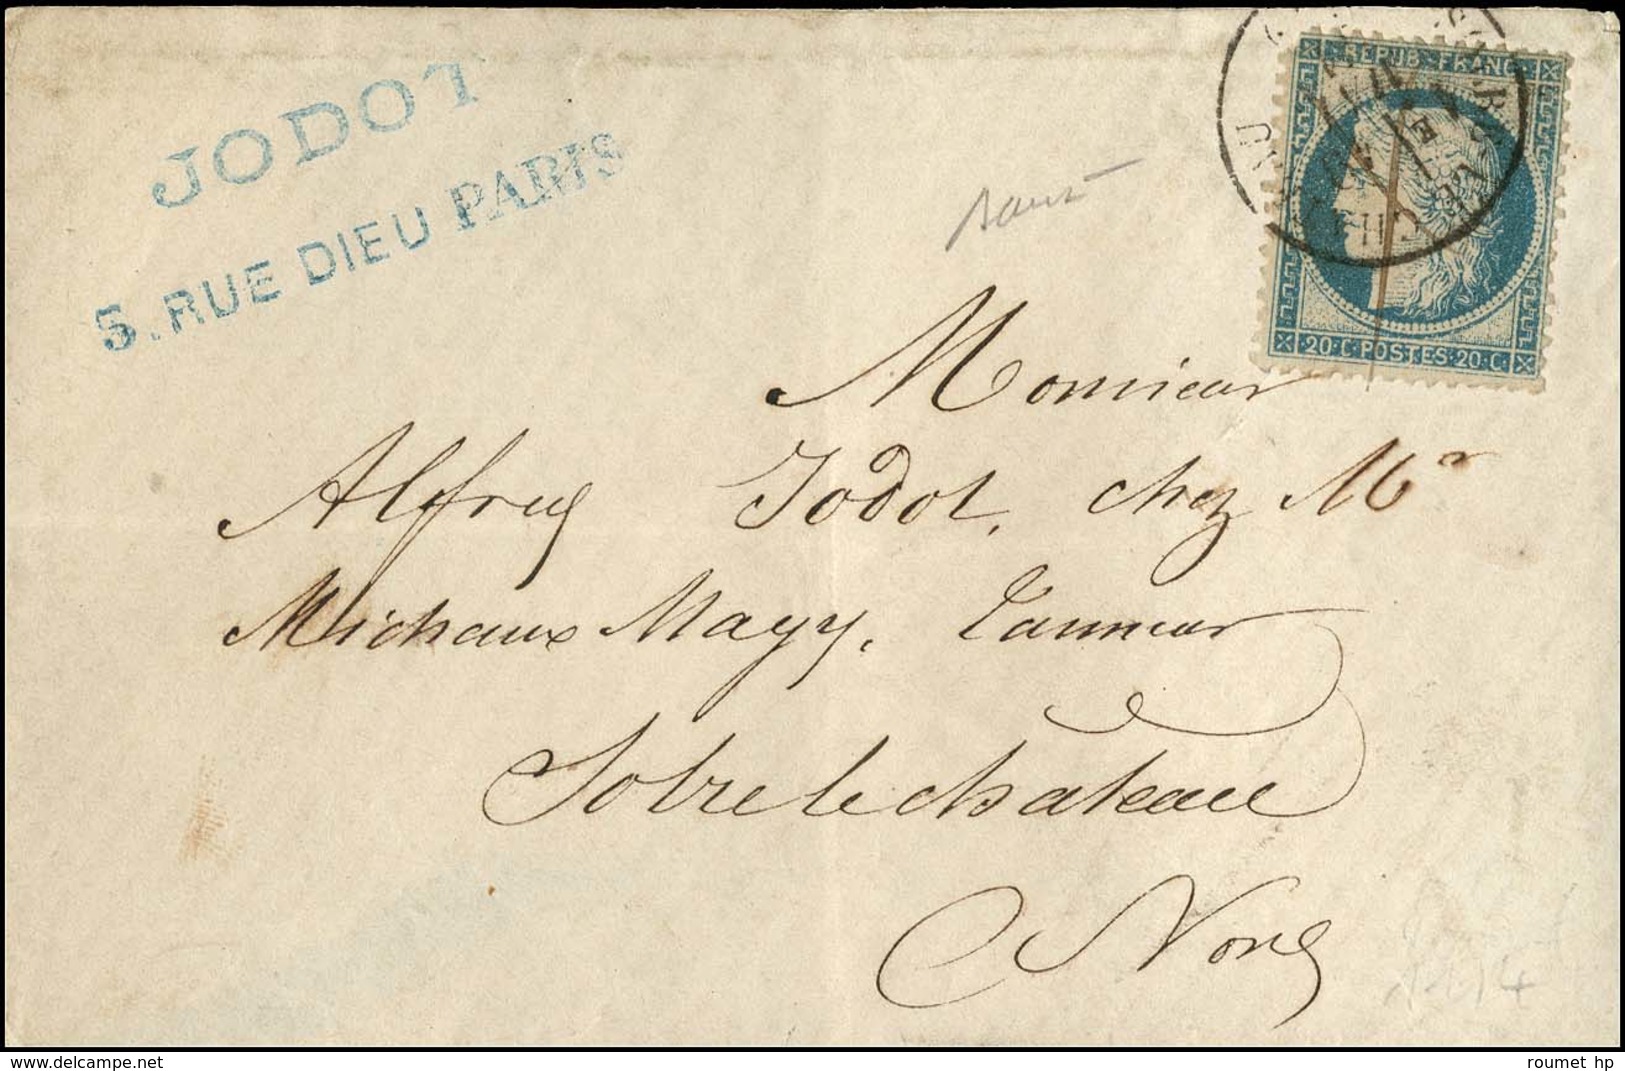 JODOT
5, RUE DIEU PARIS
REPUB. FRANC.
20. C. POSTES. 20. C.
Monsieur
Alfred Jodot, chez Mr
Michaux Mayy, Tanneur
Solre le château
Nord
1114
roumet hp